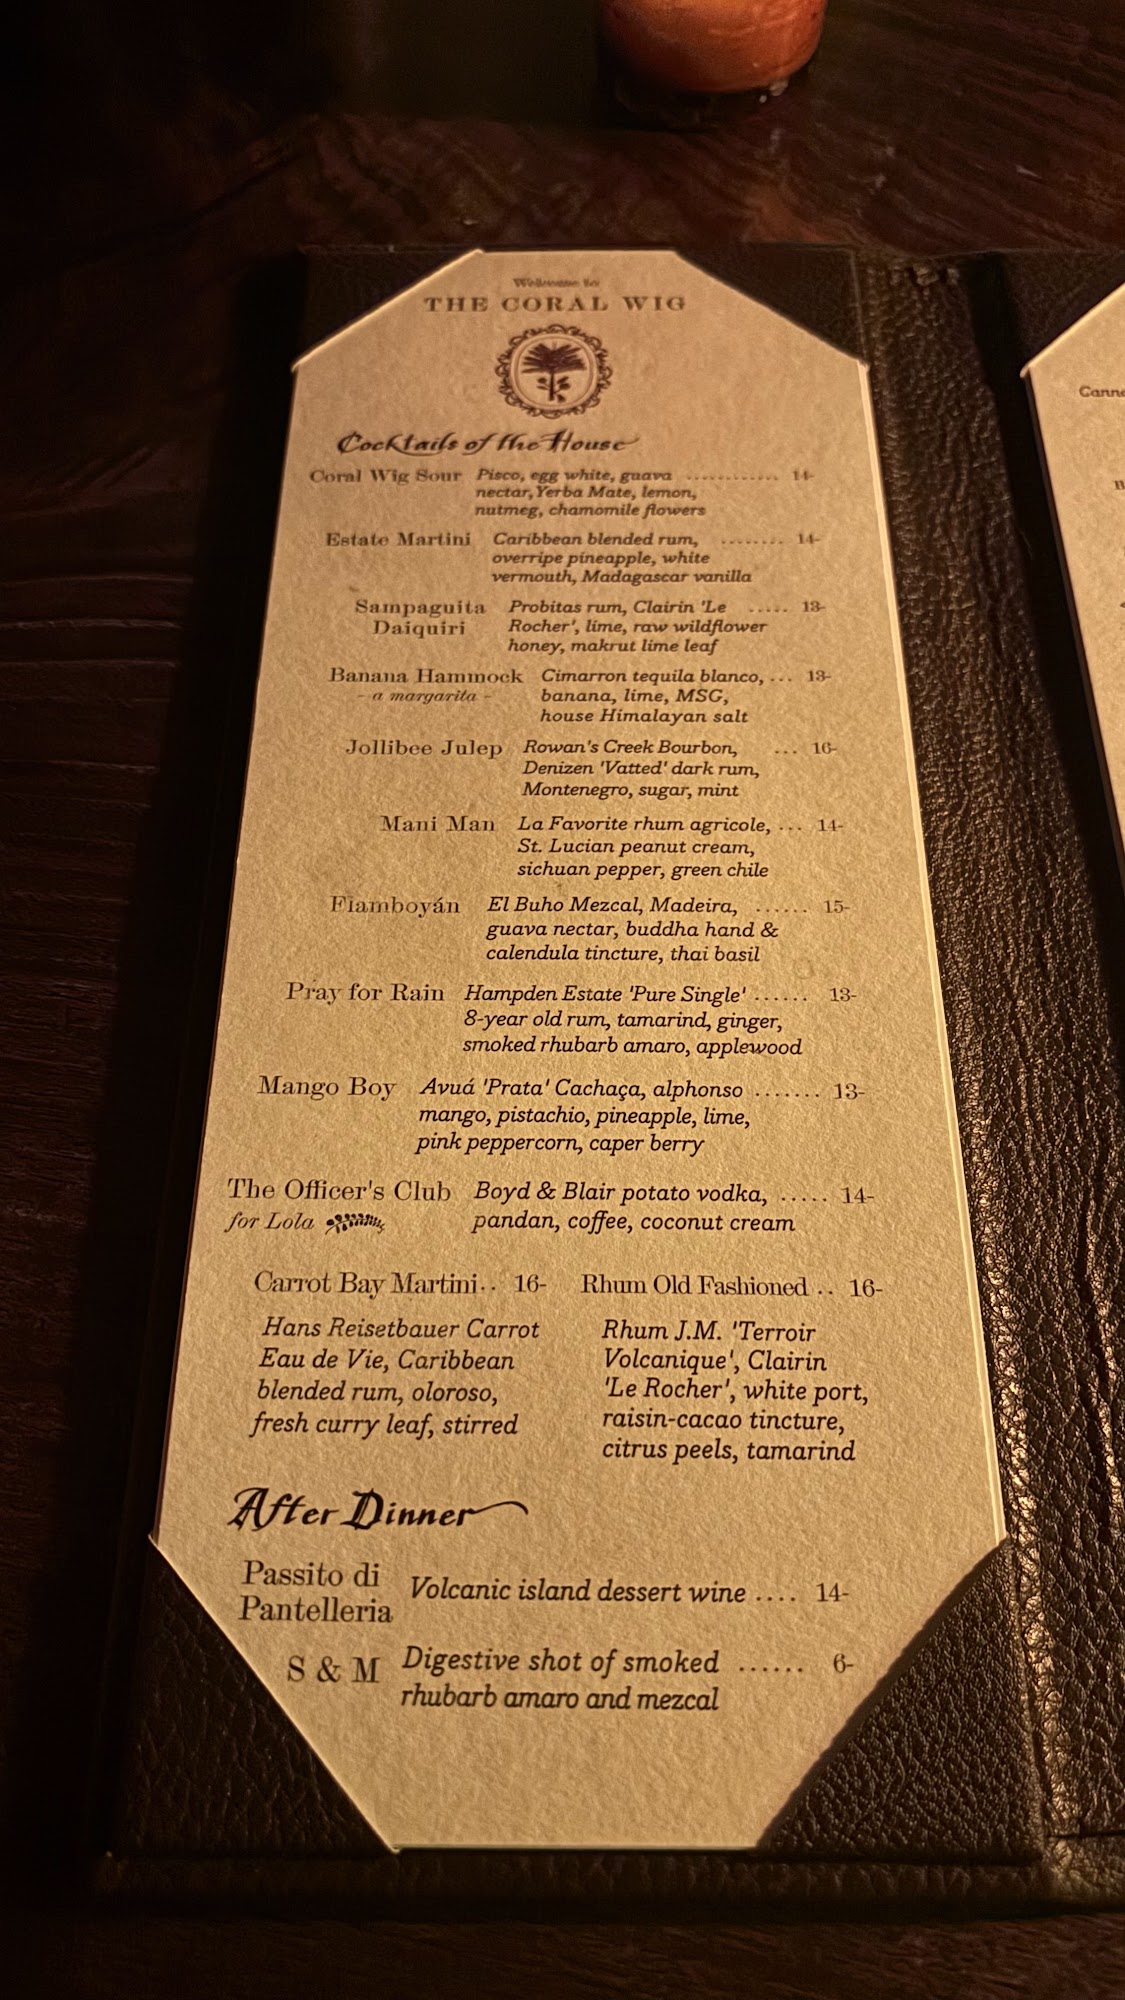 Welcome to
THE CORAL WIG
Cocktails of the House
Coral Wig Sour Pisco, egg white, guava ............ 14-
nectar, Yerba Mate, lemon,
nutmeg, chamomile flowers
Estate Martini Caribbean blended rum, ........ 14-
overripe pineapple, white
vermouth, Madagascar vanilla
Sampaguita Probitas rum, Clairin 'Le ..... 13-
Daiquiri Rocher', lime, raw wildflower
honey, makrut lime leaf
Banana Hammock Cimarron tequila blanco, ... 13-
- a margarita - banana, lime, MSG,
house Himalayan salt
Jollibee Julep Rowan's Creek Bourbon, ... 16-
Denizen 'Vatted' dark rum,
Montenegro, sugar, mint
Mani Man La Favorite rhum agricole, ... 14-
St. Lucian peanut cream,
sichuan pepper, green chile
Flamboyán El Buho Mezcal, Madeira, ...... 15-
guava nectar, buddha hand &
calendula tincture, thai basil
Pray for Rain Hampden Estate 'Pure Single' ...... 13-
8-year old rum, tamarind, ginger,
smoked rhubarb amaro, applewood
Mango Boy Avuá 'Prata' Cachaça, alphonso ....... 13-
mango, pistachio, pineapple, lime,
pink peppercorn, caper berry
The Officer's Club Boyd & Blair potato vodka, ..... 14-
for Lola pandan, coffee, coconut cream
Carrot Bay Martini.. 16-
Hans Reisetbauer Carrot
Eau de Vie, Caribbean
blended rum, oloroso,
fresh curry leaf, stirred
Rhum Old Fashioned .. 16-
Rhum J.M. 'Terroir
Volcanique', Clairin
'Le Rocher', white port,
raisin-cacao tincture,
citrus peels, tamarind
After Dinner
Passito di
Pantelleria Volcanic island dessert wine .... 14-
S & M Digestive shot of smoked ...... 6-
rhubarb amaro and mezcal